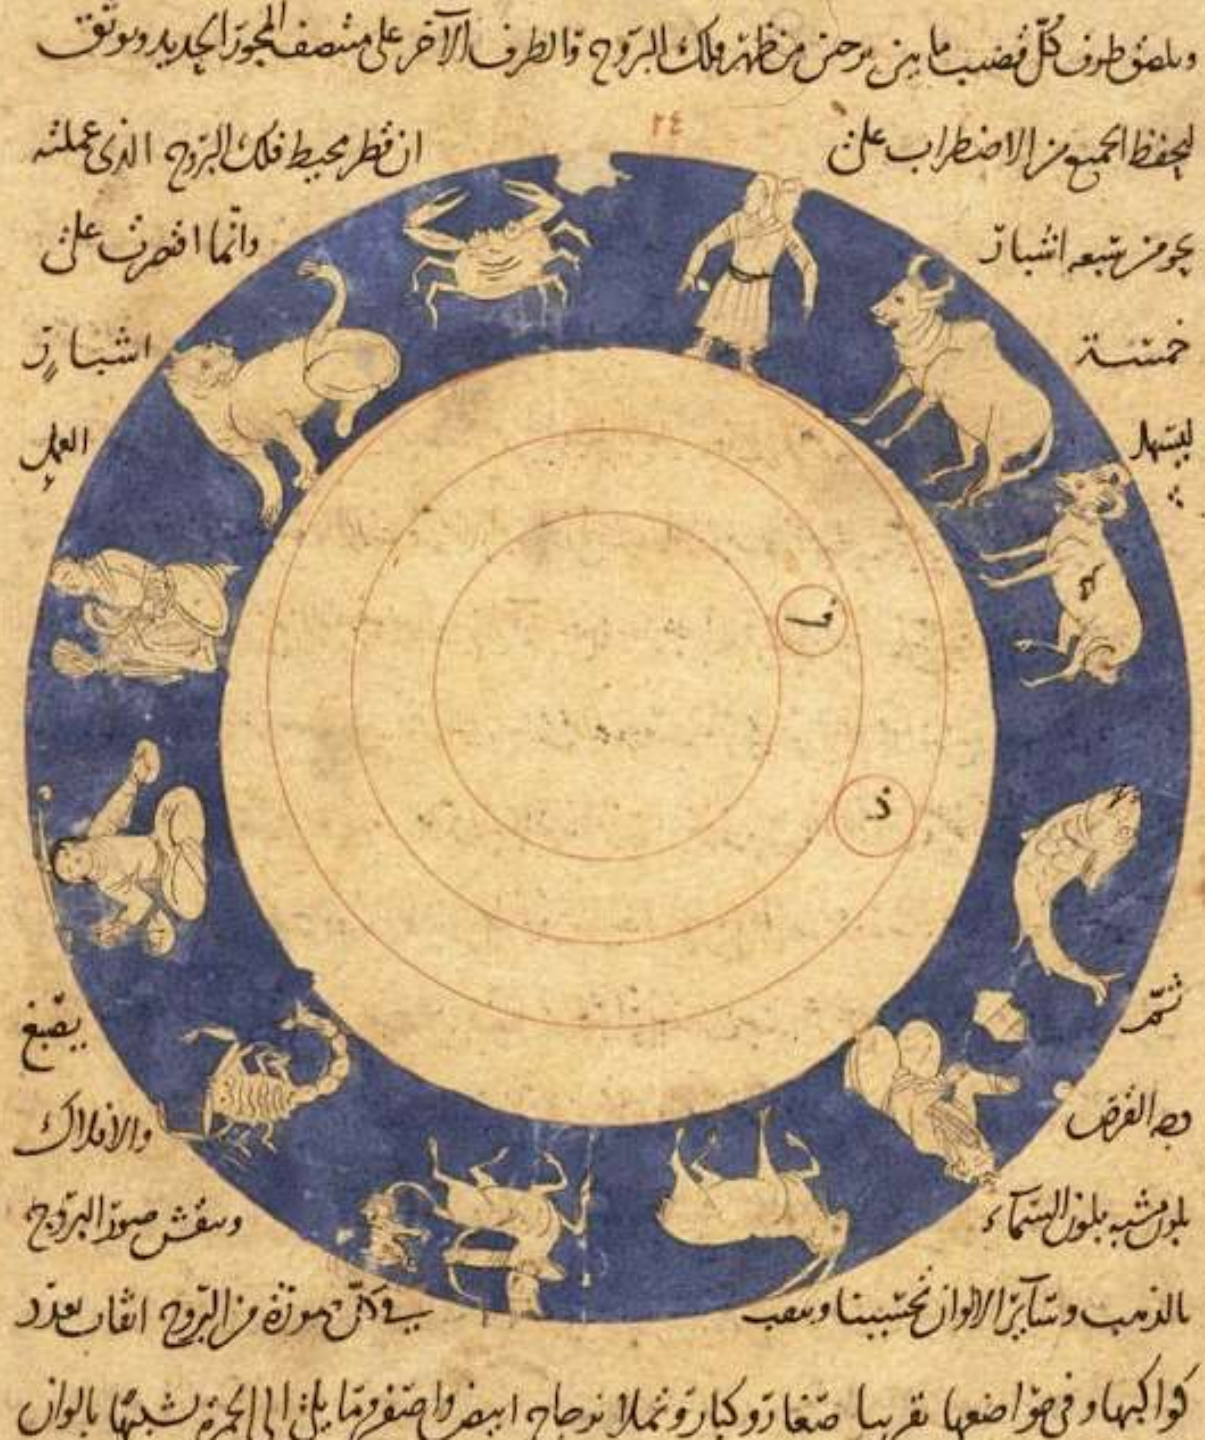 ويلصق طرف كلّ قضيب ما بين برجين من ظهر فلك البروج والطرف الآخر على منتصف المحور الحديد ويوثق
٢٤
ليحفظ الجميع من الاضطراب على ان قطر محيط فلك البروج الذي عملته
نحو من سبعه اشبار وانّما اقتصرت على
خمسة اشبارٍ
ليسهل العمل
ثمّ يصبغ
وجه القرص والافلاك
بلون مشبه بلون السماء وينقش صور البروج
بالذهب وسائر الالوان تحسينا ويثقب في كلّ صورة من البروج اثقاب بعدد
كواكبها وفي مواضعها تقريبا صغار وكبار وتملأ بزجاج ابيض واصفر وما الى الحمرة بالوان